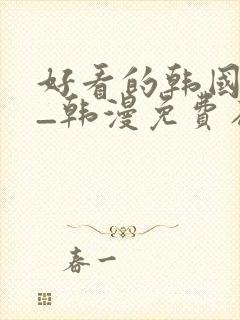 好看的韩国
_韩漫免费
春一